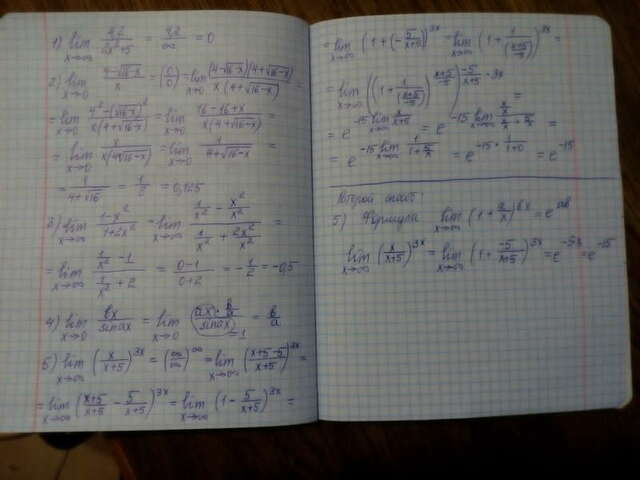 1) lim x→∞ 42/(2x²+5) = 42/∞ = 0
2) lim x→0 (4-√(16-x))/x = (0/0) = lim x→0 (4-√(16-x))(4+√(16-x))/(x(4+√(16-x))) =
= lim x→0 (4²-(√(16-x))²)/(x(4+√(16-x))) = lim x→0 (16-16+x)/(x(4+√(16-x))) =
= lim x→0 x/(x(4+√(16-x))) = lim x→0 1/(4+√(16-x)) =
= 1/(4+√16) = 1/8 = 0,125
3) lim x→∞ (1-x²)/(1+2x²) = lim x→∞ (1/x² - x²/x²)/(1/x² + 2x²/x²) =
= lim x→∞ (1/x² -1)/(1/x² + 2) = (0-1)/(0+2) = -1/2 = -0,5
4) lim x→0 bx/sinax = lim x→0 (ax)·b/a/(sinax) =1 = b/a
5) lim x→∞ (x/(x+5))^3x = (∞/∞)^∞ = lim x→∞ ((x+5-5)/(x+5))^3x =
= lim x→∞ ((x+5)/(x+5) - 5/(x+5))^3x = lim x→∞ (1 - 5/(x+5))^3x =
= lim x→∞ (1+(-5/(x+5)))^3x = lim x→∞ (1+ 1/((x+5)/-5))^3x =
= lim x→∞ ((1+ 1/((x+5)/-5))^((x+5)/-5))^(-5/(x+5)·3x) =
= e^(-15 lim x→∞ x/(x+5)) = e^(-15 lim x→∞ (x/x)/(x/x + 5/x)) =
= e^(-15 lim x→∞ 1/(1+5/x)) = e^(-15·1/(1+0)) = e^-15
Второй способ:
5) Формула lim x→∞ (1+a/x)^bx = e^ab
lim x→∞ (x/(x+5))^3x = lim x→∞ (1+ -5/(x+5))^3x = e^-5·3 = e^-15